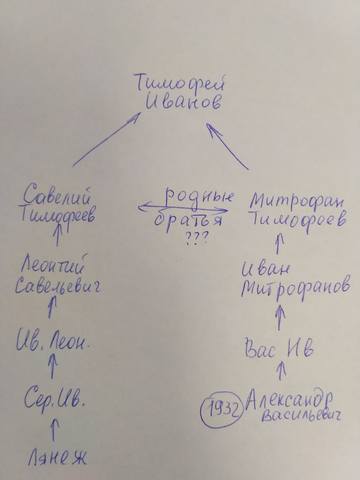 Тимофей
Иванов
Савелий
Тимофеев
родные
братья
???
Митрофан
Тимофеев
Леонтий
Савельевич
Иван
Митрофанов
Ив. Леон.
Вас Ив
Сер. Ив.
1932 Александр
Васильевич
Лянеж